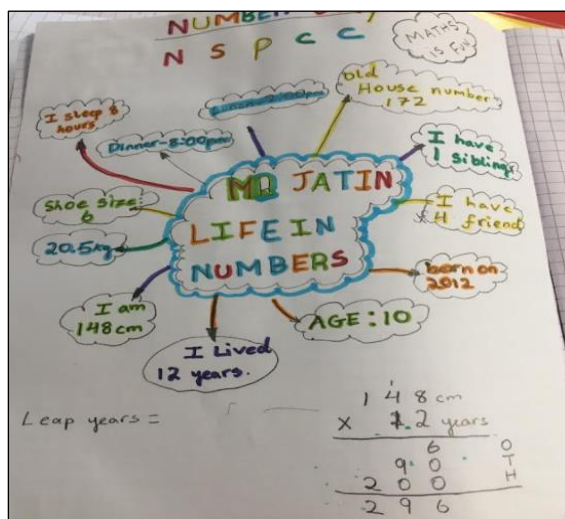 NUMBER
N S P C C
MATHS
IS FUN
I sleep 8
hours
Dinner-8:00pm
Old
House number
172
I have
1 sibling
I have
4 friend
born on
2012
AGE: 10
I Lived
12 years.
I am
148cm
20.5kg
Shoe size:
6
MR JATIN
LIFE IN
NUMBERS
Leap years =
1
148 cm
X 2 years
6 O
90 T
200 H
296